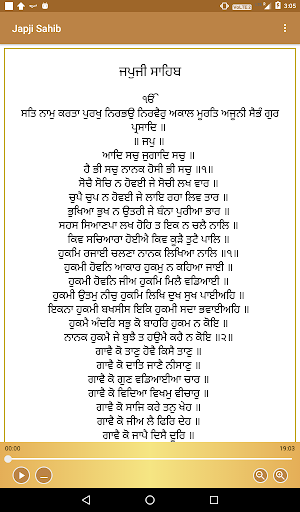 3:05
Japji Sahib
ਜਪੁਜੀ ਸਾਹਿਬ
ੴ
ਸਤਿ ਨਾਮੁ ਕਰਤਾ ਪੁਰਖੁ ਨਿਰਭਉ ਨਿਰਵੈਰੁ ਅਕਾਲ ਮੂਰਤਿ ਅਜੂਨੀ ਸੈਭੰ ਗੁਰ
ਪ੍ਰਸਾਦਿ ॥
॥ ਜਪੁ ॥
ਆਦਿ ਸਚੁ ਜੁਗਾਦਿ ਸਚੁ ॥
ਹੈ ਭੀ ਸਚੁ ਨਾਨਕ ਹੋਸੀ ਭੀ ਸਚੁ ॥੧॥
ਸੋਚੈ ਸੋਚਿ ਨ ਹੋਵਈ ਜੇ ਸੋਚੀ ਲਖ ਵਾਰ ॥
ਚੁਪੈ ਚੁਪ ਨ ਹੋਵਈ ਜੇ ਲਾਇ ਰਹਾ ਲਿਵ ਤਾਰ ॥
ਭੁਖਿਆ ਭੁਖ ਨ ਉਤਰੀ ਜੇ ਬੰਨਾ ਪੁਰੀਆ ਭਾਰ ॥
ਸਹਸ ਸਿਆਣਪਾ ਲਖ ਹੋਹਿ ਤ ਇਕ ਨ ਚਲੈ ਨਾਲਿ ॥
ਕਿਵ ਸਚਿਆਰਾ ਹੋਈਐ ਕਿਵ ਕੂੜੈ ਤੁਟੈ ਪਾਲਿ ॥
ਹੁਕਮਿ ਰਜਾਈ ਚਲਣਾ ਨਾਨਕ ਲਿਖਿਆ ਨਾਲਿ ॥੧॥
ਹੁਕਮੀ ਹੋਵਨਿ ਆਕਾਰ ਹੁਕਮੁ ਨ ਕਹਿਆ ਜਾਈ ॥
ਹੁਕਮੀ ਹੋਵਨਿ ਜੀਅ ਹੁਕਮਿ ਮਿਲੈ ਵਡਿਆਈ ॥
ਹੁਕਮੀ ਉਤਮੁ ਨੀਚੁ ਹੁਕਮਿ ਲਿਖਿ ਦੁਖ ਸੁਖ ਪਾਈਅਹਿ ॥
ਇਕਨਾ ਹੁਕਮੀ ਬਖਸੀਸ ਇਕਿ ਹੁਕਮੀ ਸਦਾ ਭਵਾਈਅਹਿ ॥
ਹੁਕਮੈ ਅੰਦਰਿ ਸਭੁ ਕੋ ਬਾਹਰਿ ਹੁਕਮ ਨ ਕੋਇ ॥
ਨਾਨਕ ਹੁਕਮੈ ਜੇ ਬੁਝੈ ਤ ਹਉਮੈ ਕਹੈ ਨ ਕੋਇ ॥੨॥
ਗਾਵੈ ਕੋ ਤਾਣੁ ਹੋਵੈ ਕਿਸੈ ਤਾਣੁ ॥
ਗਾਵੈ ਕੋ ਦਾਤਿ ਜਾਣੈ ਨੀਸਾਣੁ ॥
ਗਾਵੈ ਕੋ ਗੁਣ ਵਡਿਆਈਆ ਚਾਰ ॥
ਗਾਵੈ ਕੋ ਵਿਦਿਆ ਵਿਖਮੁ ਵੀਚਾਰੁ ॥
ਗਾਵੈ ਕੋ ਸਾਜਿ ਕਰੇ ਤਨੁ ਖੇਹ ॥
ਗਾਵੈ ਕੋ ਜੀਅ ਲੈ ਫਿਰਿ ਦੇਹ ॥
ਗਾਵੈ ਕੋ ਜਾਪੈ ਦਿਸੈ ਦੂਰਿ ॥
00:00 19:03